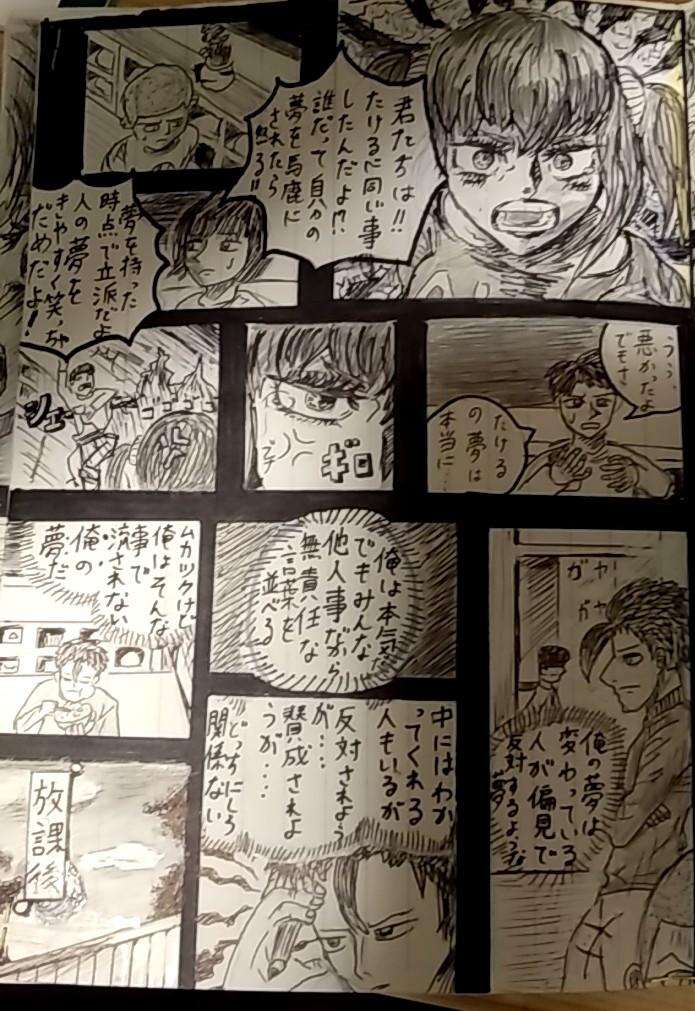 君たちは!!
たけるに同じ事
したんだよ!?
誰だって自分の
夢を馬鹿に
されたら
怒る!!
夢を持った
時点で立派だよ
人の夢を
きやすく笑っちゃ
だめだよ!
うぅ
悪かったよ
でもさ
たける
の夢は
本当に…
ギロ
シェー
ガヤ
ガヤ
俺の夢は
変わっている
人が偏見で
反対するような
夢
俺は本気だ
でもみんな
他人事ながら
無責任な
言葉を
並べる
ムカツクけど
俺はそんな
事で
流されない
俺の
夢だ
中にはわか
ってくれる
人もいるが
反対されよう
が‥‥
賛成されよ
うが‥‥
どっちにしろ
関係ない
放課後